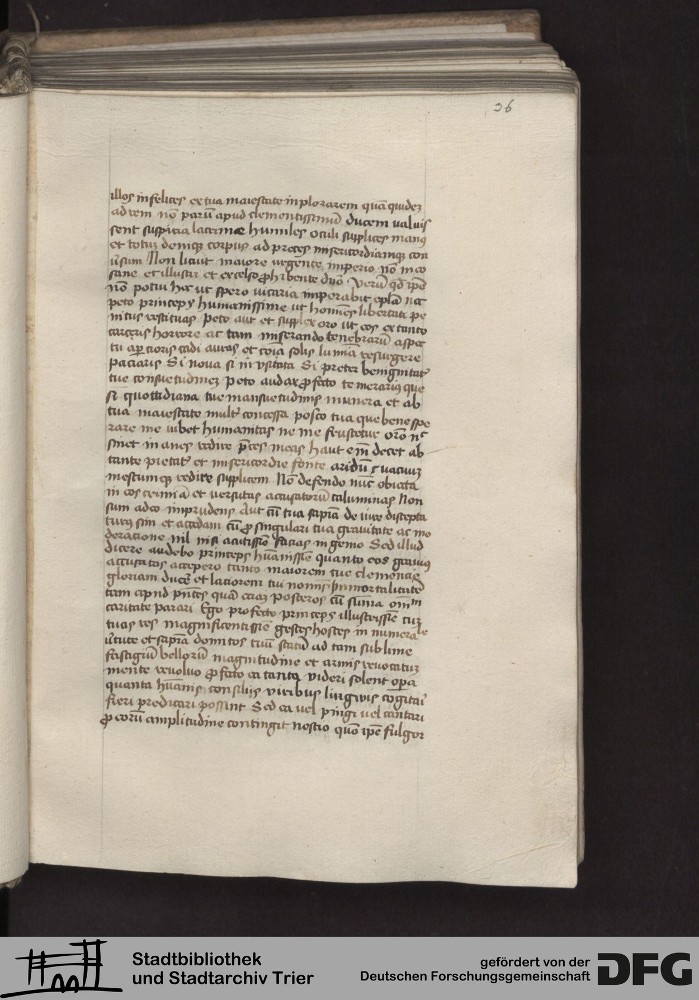 36
illos infelices ex tua maiestate inplorarem quā quidez
ad rem nō parū apud clementissimū ducem valuis
sent suspiria lacrime humiles oculi supplices manꝯ
et totuʒ deniqꝫ corpus ad preces misericordiamqꝫ con
uersum Non licuit maiore urgente imperio nō
sane et illustri et excelso ꝓhibente duo Verū qd ipē
nō potui hec ut spero vicaria imperabit
peto princeps humanissime ut homēs libertati pe
nitus restituas Peto aut et supplex oro ut eos ex tanto
carceris horrore ac tam miserando tenebrarū aspec
tu aptiores celi auras et solis lumīa resurgere
paciaris Si noua si in vsitata Si preter benignitatē
tue consuetudinez peto audax ꝓfecto temerarius que
si quottidiana tue mansuetudinis munera et ab
tua maiestate multꝭ concessa posco tua que bene spe
rare me iubet humanitas ne me frustetur
sinet inanes redire pces meas haut em decet ab
tante pietatꝭ et misericordie fonte aridū vacuuz
mestumqꝫ redire supplicem Nō defendo nūc obiecta
in eos crimīa et versutas accusatorū calumnias Non
sum adeo imprudens Aut cū tua sapīa de iure discepta
turus sim et accedam cū ꝓ singulari tua grauitate ac mo
deratione nil nisi acutissīo facias ingenio Sed illud
dicere audebo princeps hūanissīe quanto eos grauiꝯ
accusatos accepero tanto maiorem tue clementie
gloriam ducē et laciorem tui nomīs īmmortalitatē
tam apud pn̄tes quā eciaz posteros cū suma om̄m
caritate parari Ego profecto princeps illustrissīe cuz
tuas res magnificentissīe gestas hostes innumera
v̄tute et sapīa domitos tuū statū ad tam sublime
fastigiū bellorū magnitudine et armis reuocatuz
mente reuoluo ꝓfecto ea tanta videri solent opa
quanta hūanis consilijs viribus linguis cogitari
fieri predicari possint Sed ea vel pingi vel cantari
ꝓ eorū amplitudine contingit nostro quō ipē fulgor
Stadtbibliothek
und Stadtarchiv Trier
gefördert von der
Deutschen Forschungsgemeinschaft
DFG